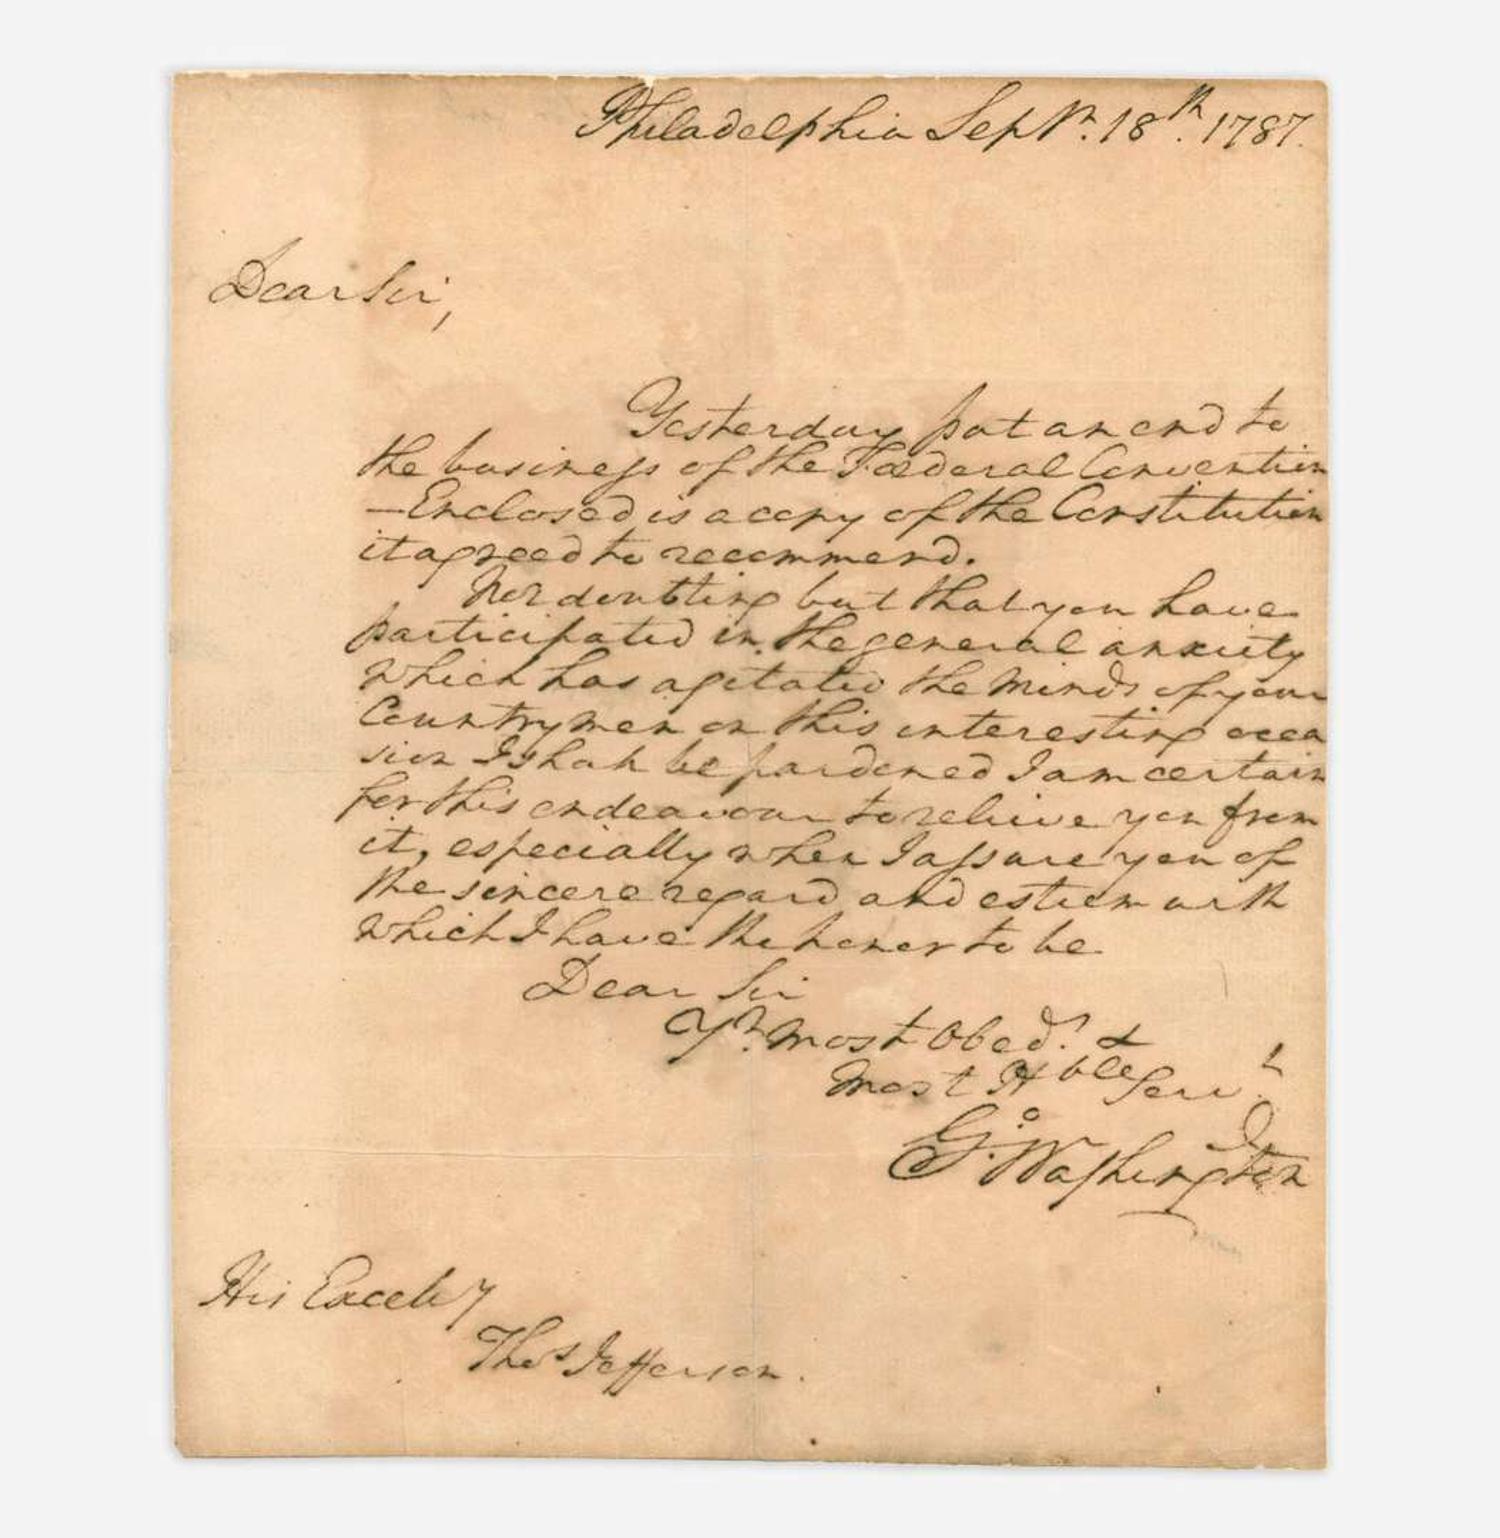 Philadelphia Sepr. 18th. 1787.
Dear Sir,
Yesterday put an end to
the business of the Fœderal Convention
—Enclosed is a copy of the Constitution
it agreed to recommend.
Not doubting but that you have
participated in the general anxiety
which has agitated the minds of your
Countrymen on this interesting occa
sion I shall be pardoned I am certain
for this endeavour to relieve you from
it, especially when I assure you of
the sincere regard and esteem with
which I have the honor to be
Dear Sir
Yr. most Obedt. &
most Hble Servt.
Go. Washington
His Excely
Thos Jefferson.